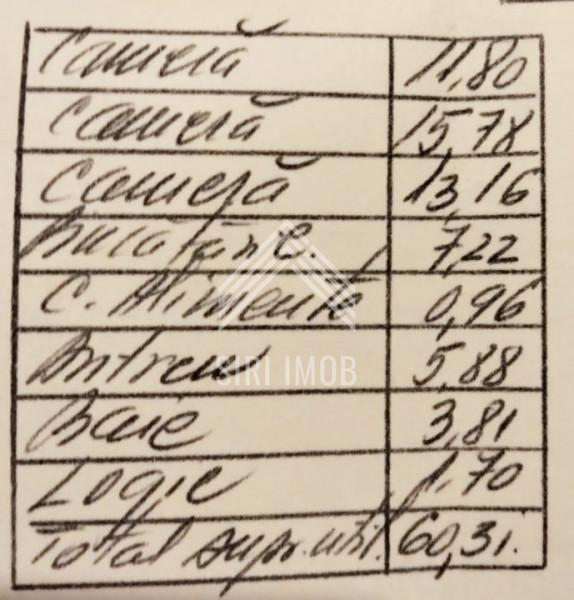 Cameră 11,80
Cameră 15,78
Cameră 13,16
Bucătărie. 7,22
C. Alimente 0,96
Antreu 5,88
SIRI IMOB
Baie 3,81
Logie 1.70
Total supr. util. 60,31.